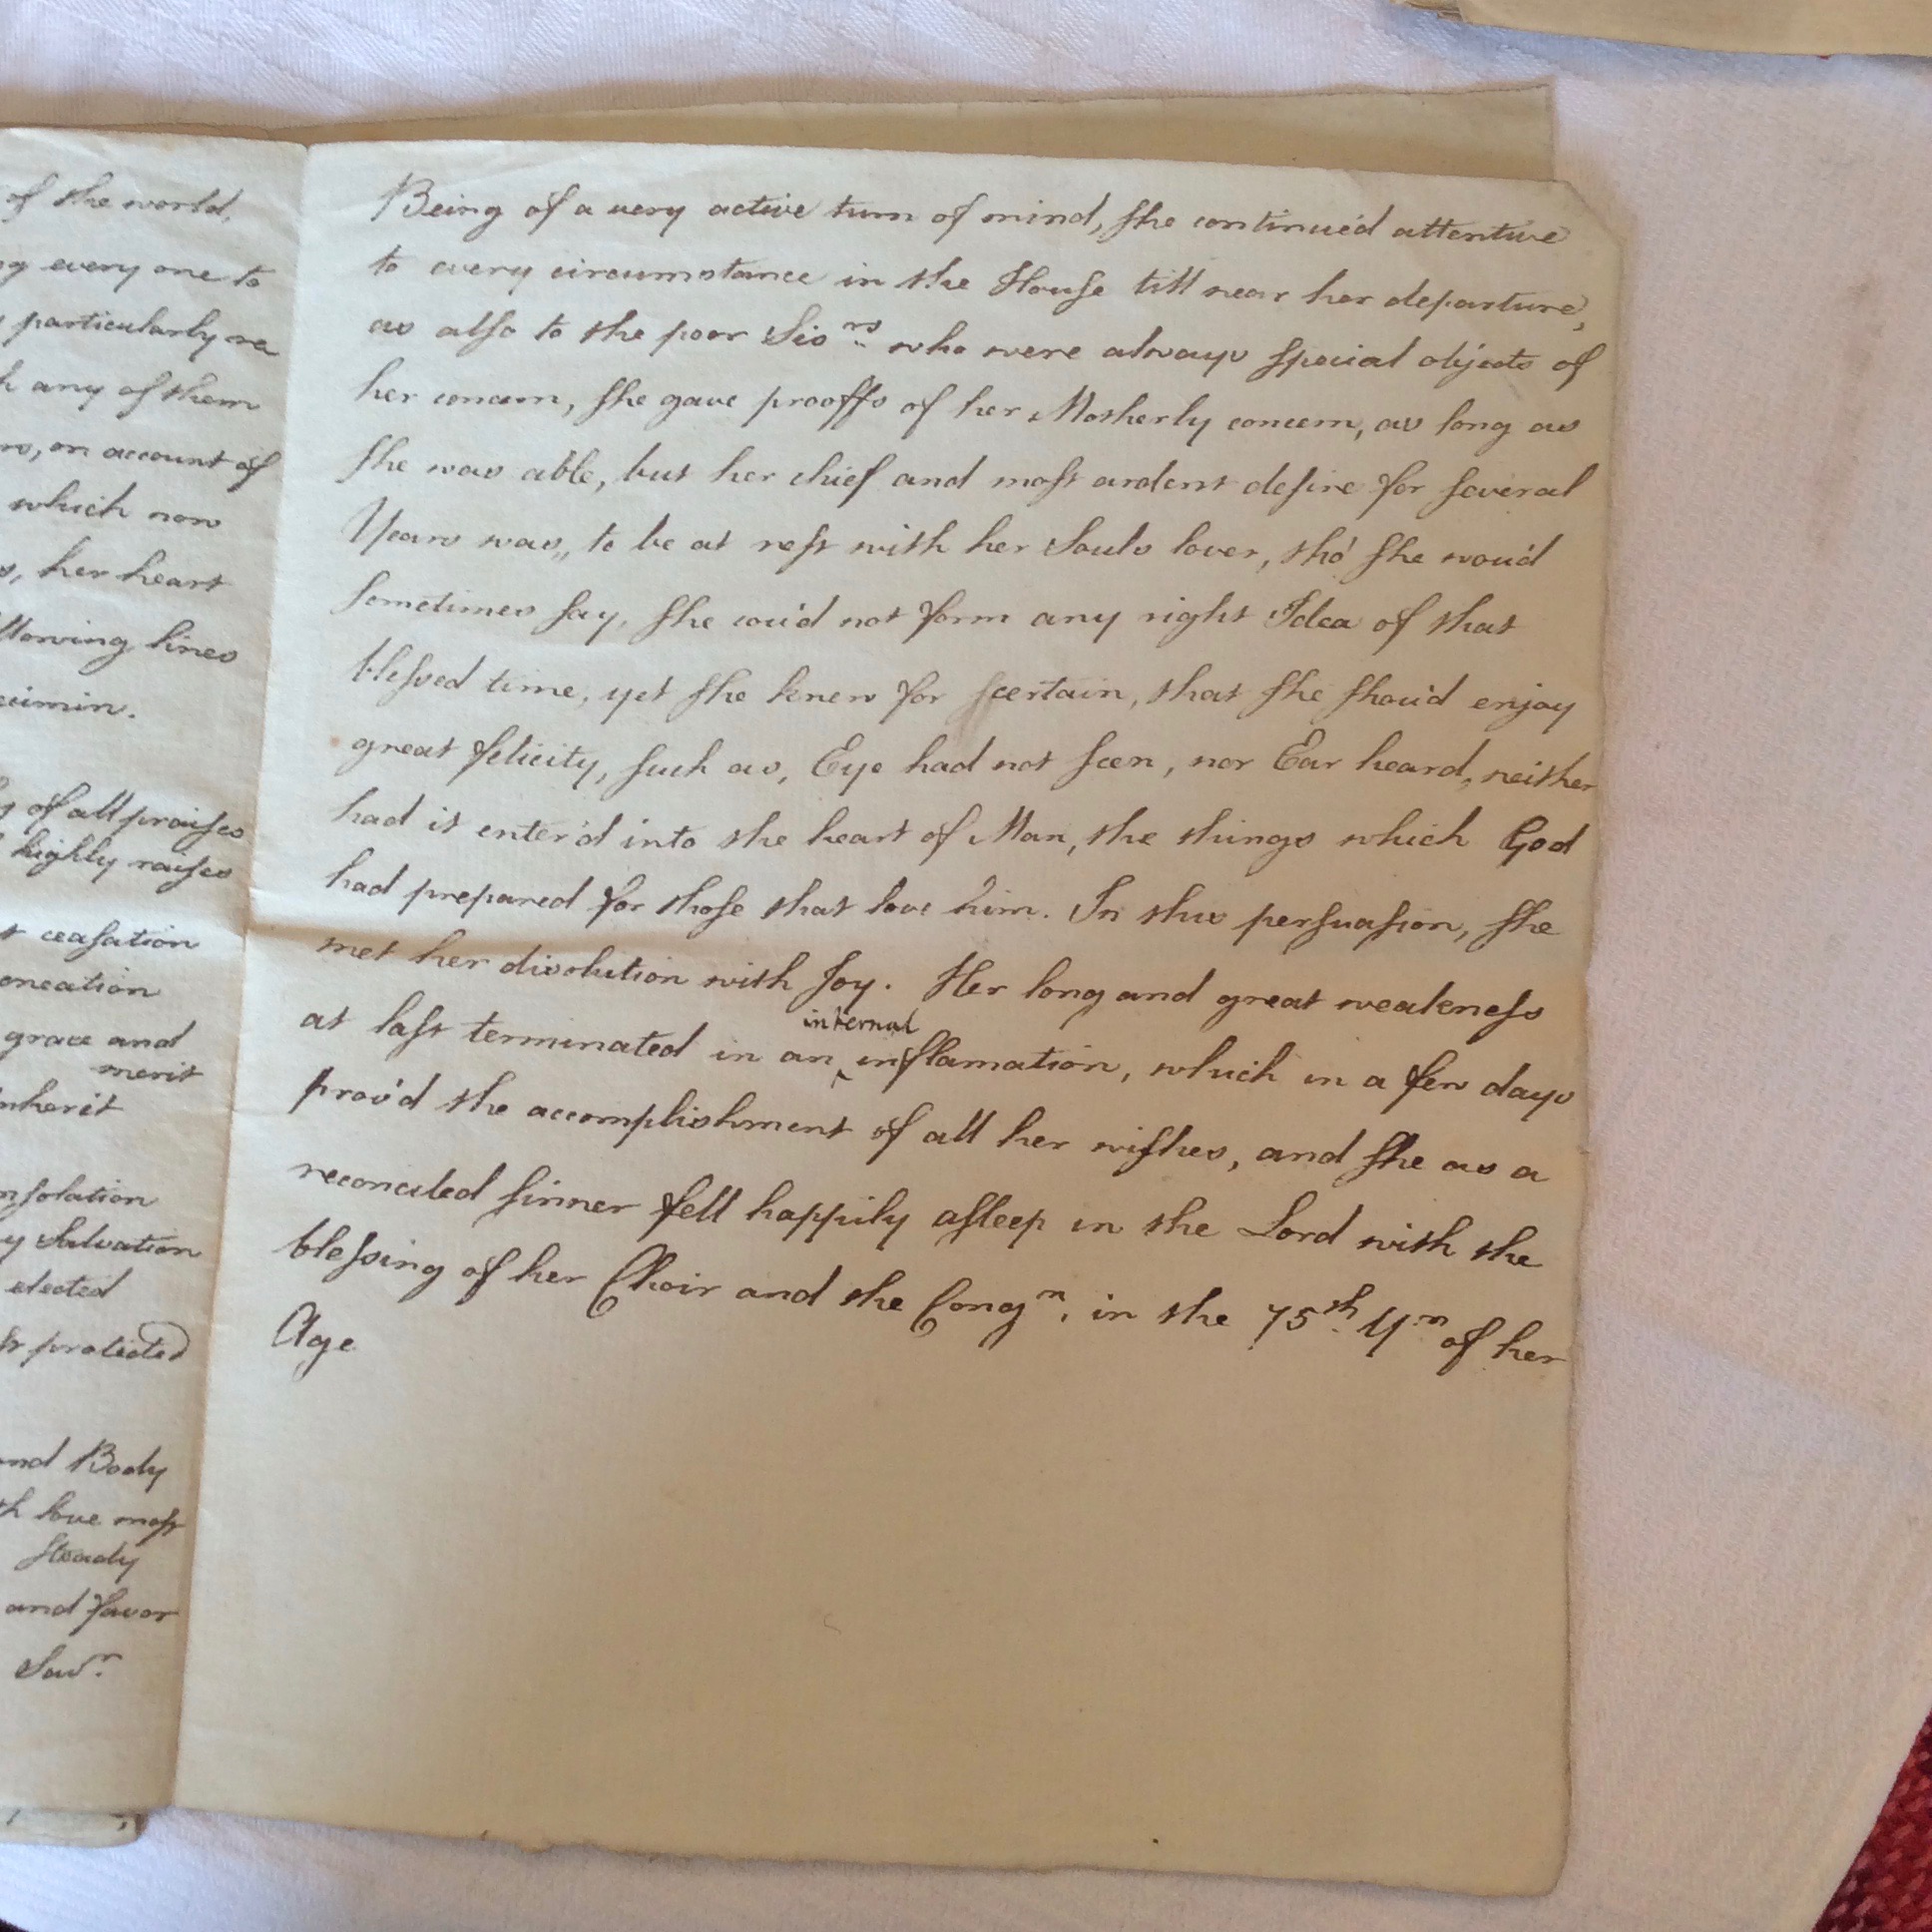 of the world,
every one to
particularly re
any of them
on account of
which now
her heart
lines
of all praises
highly raises
ceasation
grace and
merit
Salvation
elected
protected
and Body
love most
steady
and favor
Savr.
Being of a very active turn of mind, she continued attentive
to every circumstance in the House till near her departure,
as also to the poor Sisrs who were always special objects of
her concern, she gave prooffs of her Motherly concern, as long as
she was able, but her chief and most ardent desire for several
Years was,, to be at rest with her Souls lover, tho' she wou'd
sometimes say, she cou'd not form any right Idea of that
blessed time, yet she knew for scertain, that she shou'd enjoy
great felicity, such as, Eye had not seen, nor Ear heard, neither
had it enter'd into the heart of Man, the things which God
had prepared for those that love him. In this persuasion, she
met her disolution with Joy. Her long and great weakness
at last terminated in an internal inflamation, which in a few days
prov'd the accomplishment of all her wishes, and she as a
reconciled sinner fell happily asleep in the Lord with the
blessing of her Choir and the Congn, in the 75th Yr of her
Age